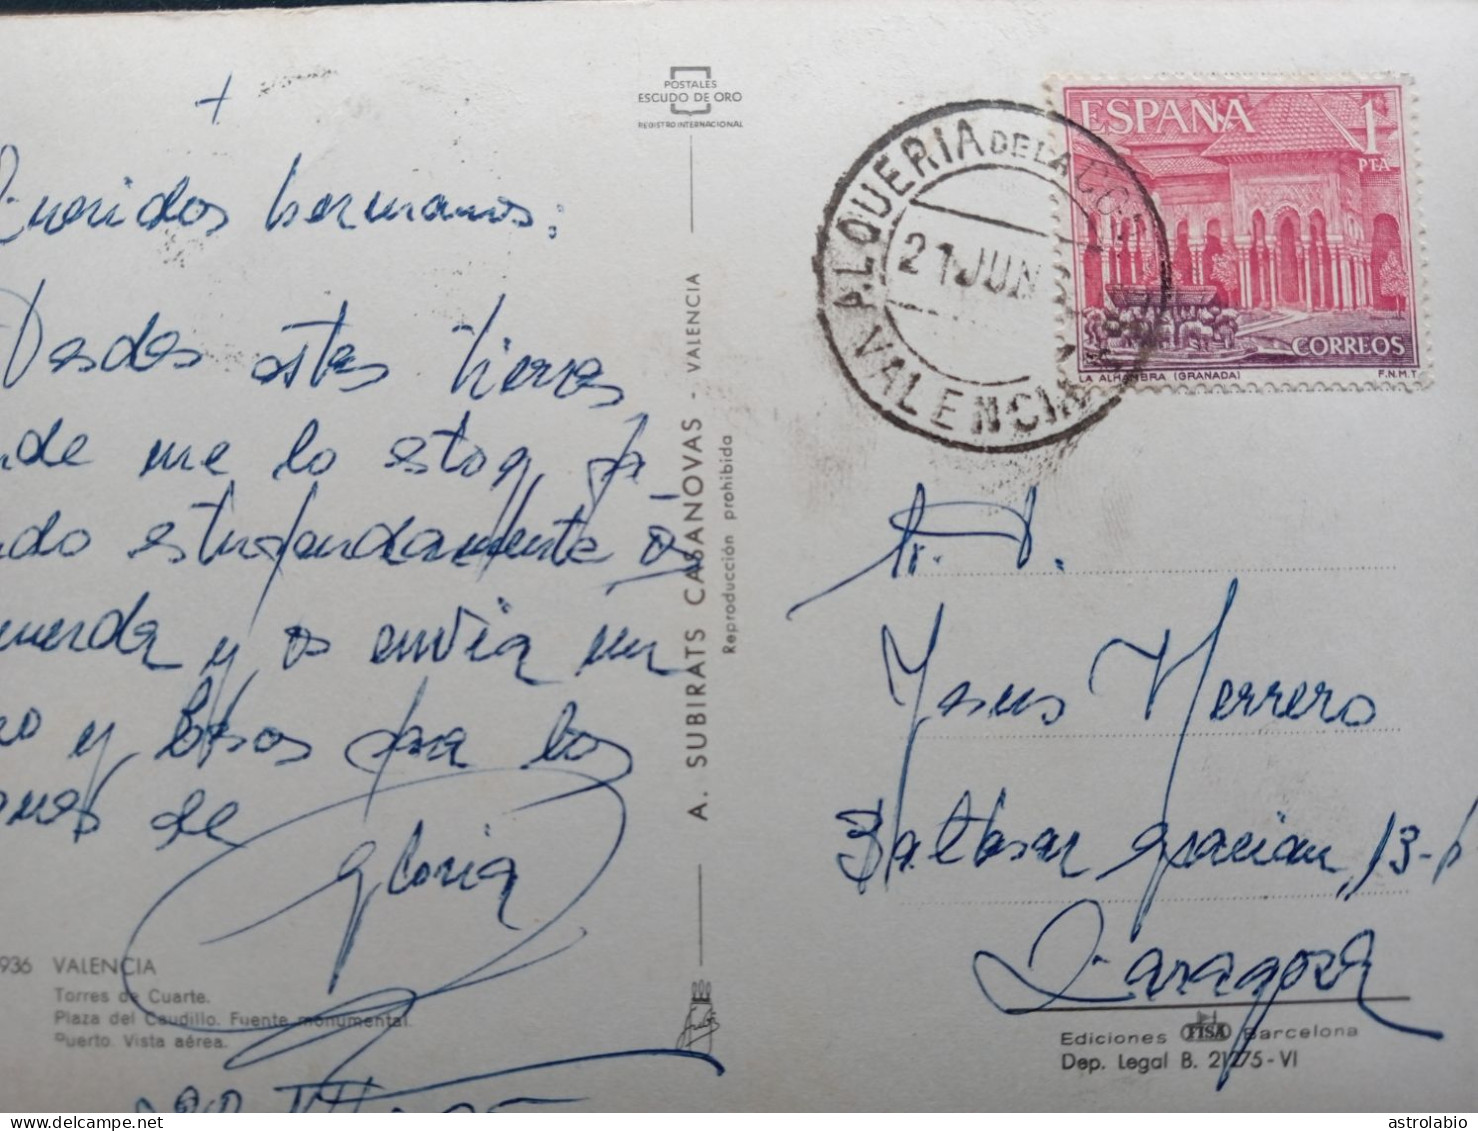 POSTALES
ESCUDO DE ORO
REGISTRO INTERNACIONAL
+
Queridos hermanos:
Desde estas tierras
me lo estoy
estupendamente os
y os envía un
y besos para los
de
Gloria
936 VALENCIA
Torres de Cuarte.
Plaza del Caudillo. Fuente monumental.
Puerto. Vista aérea.
A. SUBIRATS CASANOVAS - VALENCIA
Reproducción prohibida
ALQUERIA DE LA CON
21 JUN
VALENCIA
ESPAÑA 1
PTA
CORREOS
LA ALHAMBRA (GRANADA) F.N.M.T
Jesus Herrero
Baltasar Gracian, 13-
Zaragoza
Ediciones FISA Barcelona
Dep. Legal B. 21275-VI
astrolabio